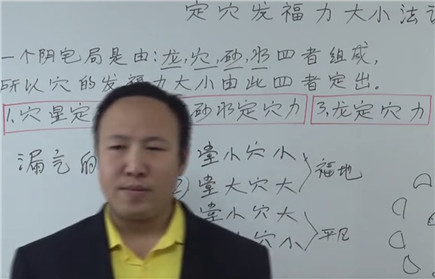 定穴发福力大小法
一个阴宅局是由:龙,穴,砂,水四者组成,
所以穴的发福力大小由此四者定出。
1.穴星定 砂水定穴力 3.龙定穴力
漏气的 堂小穴小
2) 堂大穴大 福地
堂小穴大
穴小 平凡